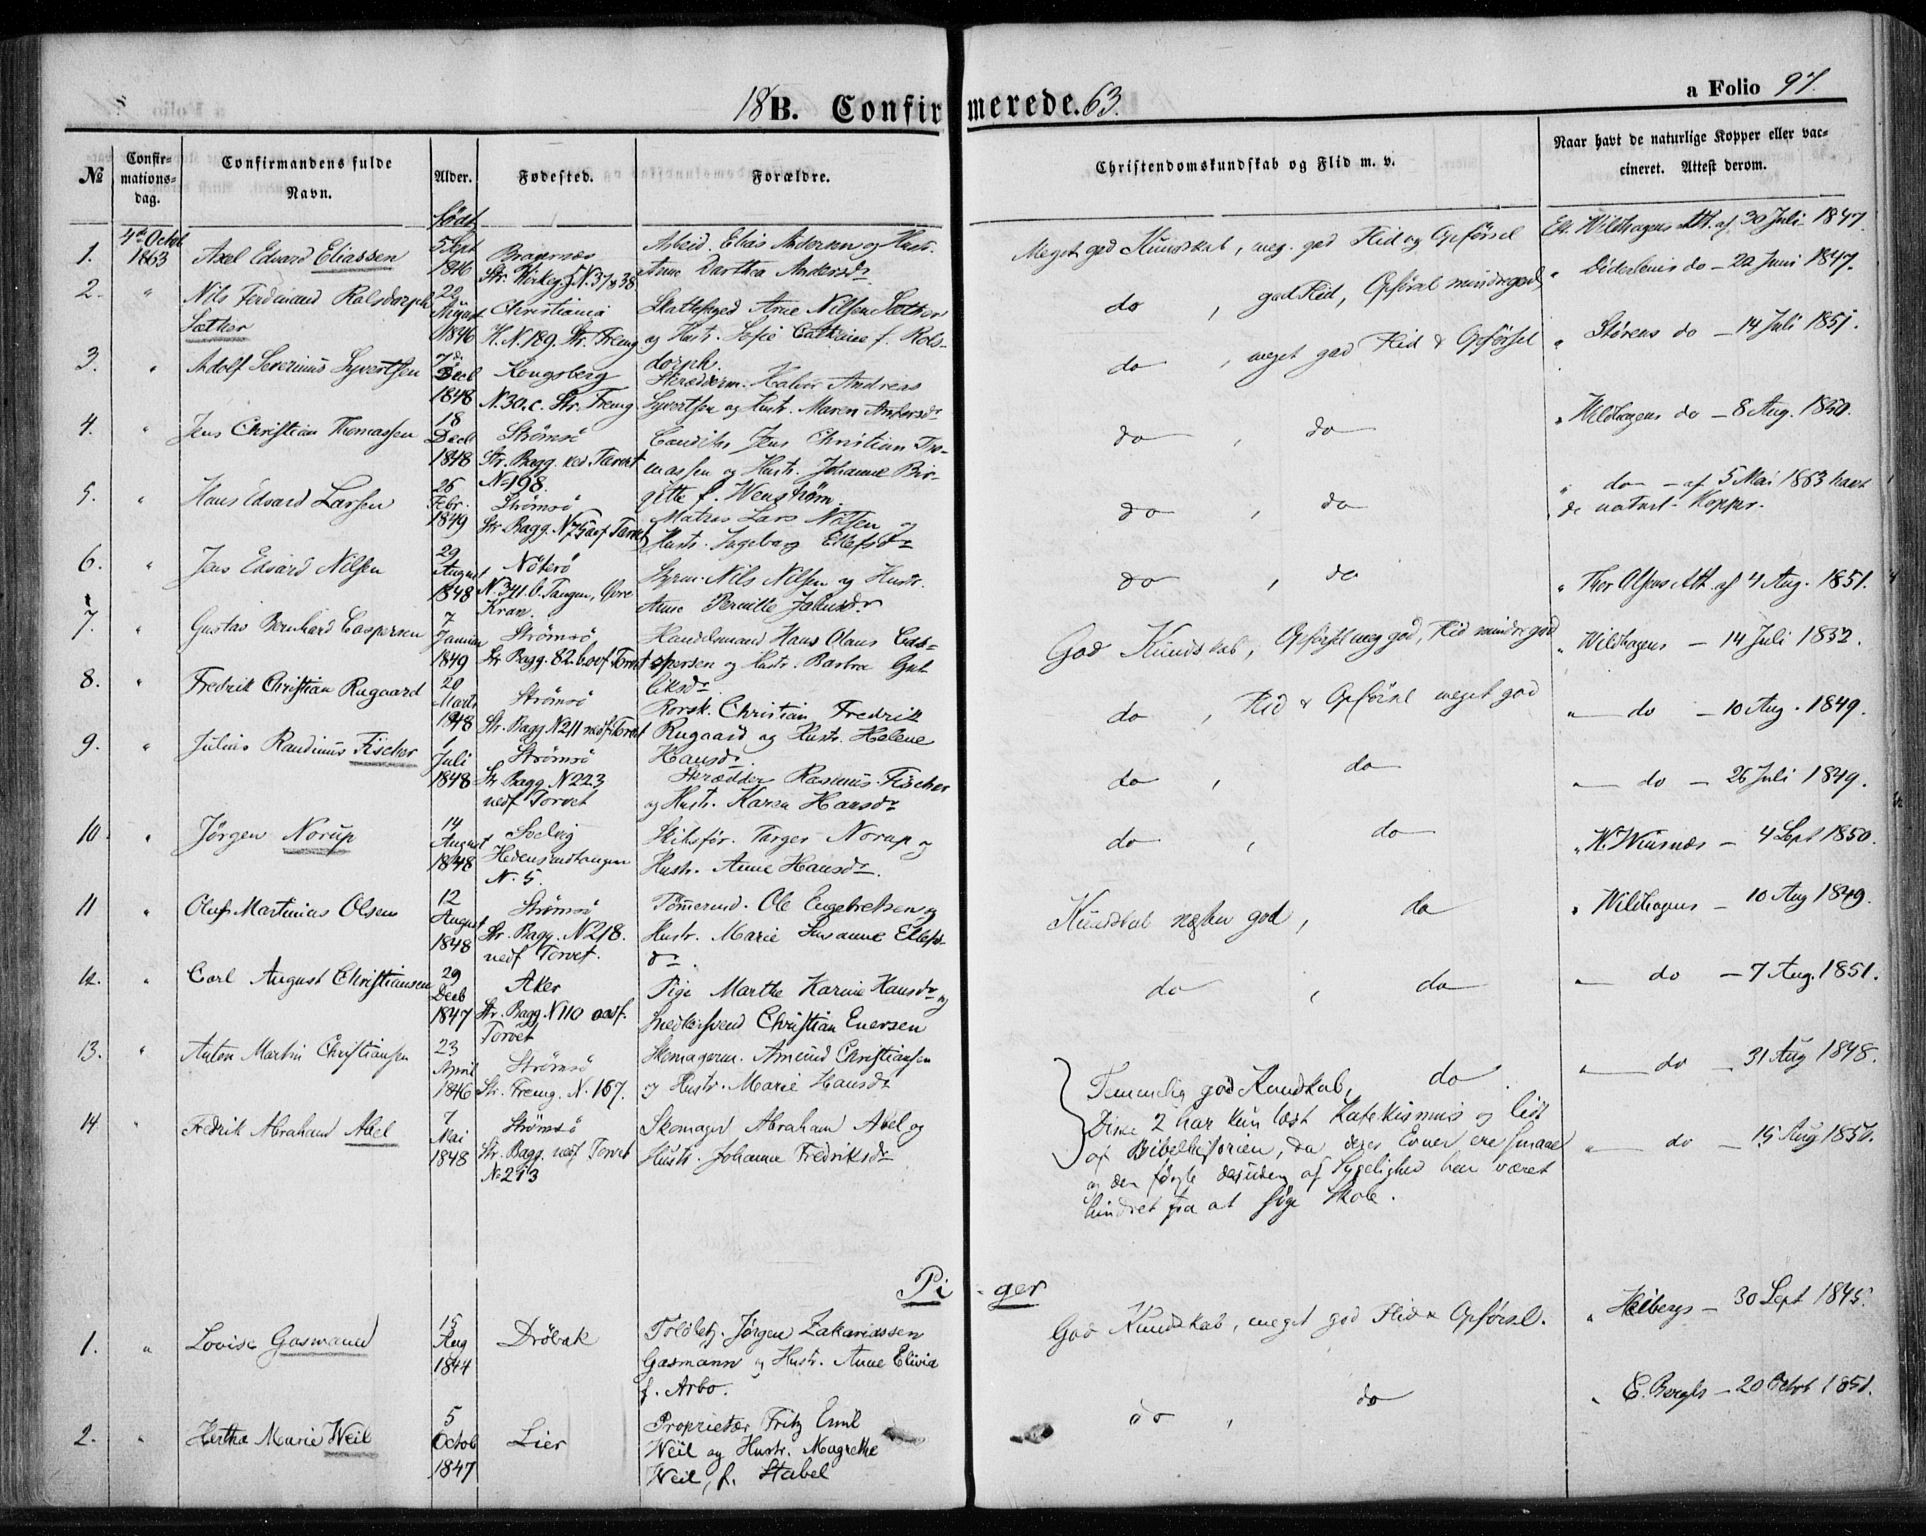 18 B. Confirmerede. 63. a Folio 97.
No
Confir-
mations-
dag.
Confirmandens fulde
Navn.
Alder.
Fødested.
Forældre.
Christendomskundskab og Flid m. v.
Naar havt de naturlige Kopper eller vac-
cineret. Attest derom.
født
1. 4de Octob 1863 Axel Edvard Eliassen
5 Sept 1846
Bragernæs
Arbeid. Elias Andersen og Hustr.
Anne Dorthea Andersdr
Meget god Kundskab, meg. god Flid og Opførsel
Eft. Wildhagens Att. af 30 Juli 1847.
2. " Nils Ferdinand Rolsdorph
Sæther
22 August 1846
Christiania
H. N. 189. Str. Tremg
Skattefoged Arne Nilsen Sæther
og Hustr. Sofie Cathrine f. Rols-
dorph.
do, god Flid, Opførsel mindre god
" do - 22 Juni 1847.
3. " Adolf Severinus Syvertsen
7de Decb 1848
Kongsberg
N. 30.c. Str. Tremg
Skrædderm. Halvor Andreas
Syvertsen og Hustr. Maren Andersdr
do, meget god Flid & Opførsel
" Størens do - 14 Juli 1851.
4. " Jens Christian Thomassen
18 Decb 1848
Strømsø
Str. Bagg. ned. Torvet
No 198.
Jens Christian Tho-
massen og Hustr. Johanne Bir-
gitte f. Wenstrøm.
do, do
" Wildhagens do - 8 Aug. 1850.
5. " Hans Edvard Larsen
26 Febr. 1849
Strømsø
Str. Bagg. N. 75 ovf Torvet
Matros Lars Nilsen og
Hustr. Ingeborg Ellefsdr
do, do
" do - af 5 Mai 1863 havt
de naturl. Kopper.
6. " Jens Edvard Nilsen
29 August 1848
Nøterø
N. 341.b. Tangen, Øvre
Kran.
Styrm. Nils Nilsen og Hustr.
Anne Pernille Johnsdr
do, do
" Thor Olsens Att. af 4 Aug. 1851.
7. " Gustav Bernhard Caspersen
7 Januar 1849
Strømsø
Str. Bagg. 82.b ovf Torvet
Handelsmand Hans Olaus Cas-
persen og Hustr. Bastra Gul-
liksdr.
God Kundskab, Opførsel meg god, Flid mindre god
" Wildhagens - 14 Juli 1852.
8. " Fredrik Christian Rugaard
20 Marts 1848
Strømsø
Str. Bagg N 211 nedf. Torvet
Christian Fredrik
Rugaard og Hustr. Helene
Hansdr.
do, Flid & Opførsel meget god
" do - 10 Aug. 1849.
9. " Julius Randinius Fischer
1 Juli 1848
Strømsø
Str. Bagg. N 223
nedf Torvet
Skrædder Rasmus Fischer
og Hustr. Karen Hansdr
do, do
" do - 26 Juli 1849.
10. " Jørgen Norup
14 August 1848
Svelvig
Hedensrudtangen
N. 5.
Skibsfør. Targer Norup og
Hustr. Anne Hansdr.
do, do
" 4 Sept 1850.
11 " Oluf Martinius Olsen
12 August 1848
Strømsø
Str. Bagg. N 218.
nedf Torvet.
Tømmermd. Ole Engebretsen og
Hustr. Marie Susanne Ellefs-
dr.
Kundskab næsten god, do
" Wildhagens - 10 Aug 1849.
12. " Carl August Christiansen
29 Decb 1847
Aker
Str. Bagg. N 110 ovf.
Torvet
Pige Marthe Karine Hansdr og
Snedkersvend Christian Enersen
do, do
" do - 7 Aug. 1851.
13. " Anton Martin Christiansen
23 April 1846
Strømsø
Str. Tremg. N. 167.
Skomagerm. Amund Christiansen
og Hustr. Marie Hansdr
Temmelig god Kundskab, do.
" do - 31 Aug 1848.
14 " Fredrik Abraham Abel
7 Mai 1848
Strømsø
Str. Bagg. nedf Torvet
No 293
Skomager Abraham Abel og
Hustr. Johanne Fredriksdr
Disse 2 har kun læst Katekismus og lidt
af Bibelhistorien, da deres Evner ere smaae
og den første desuden af Sygelighed har været
hindret fra at søge Skole.
" do - 15 Aug 1850.
Pi - ger
1. " Lovise Gasmann
15 Aug 1844
Drøbak
Toldbetj. Jørgen Zakariassen
Gasmann og Hustr. Anne Elivia
f. Arbo.
God Kundskab, meget god Flid & Opførsel.
" Heibergs - 30 Sept 1845.
2. " Hertha Marie Weil
5 Octob 1847
Lier
Proprietær Fritz Emil
Weil og Hustr. Magrethe
Weil, f. Stabel
do, do
" E. Berghs - 20 Octob 1851.